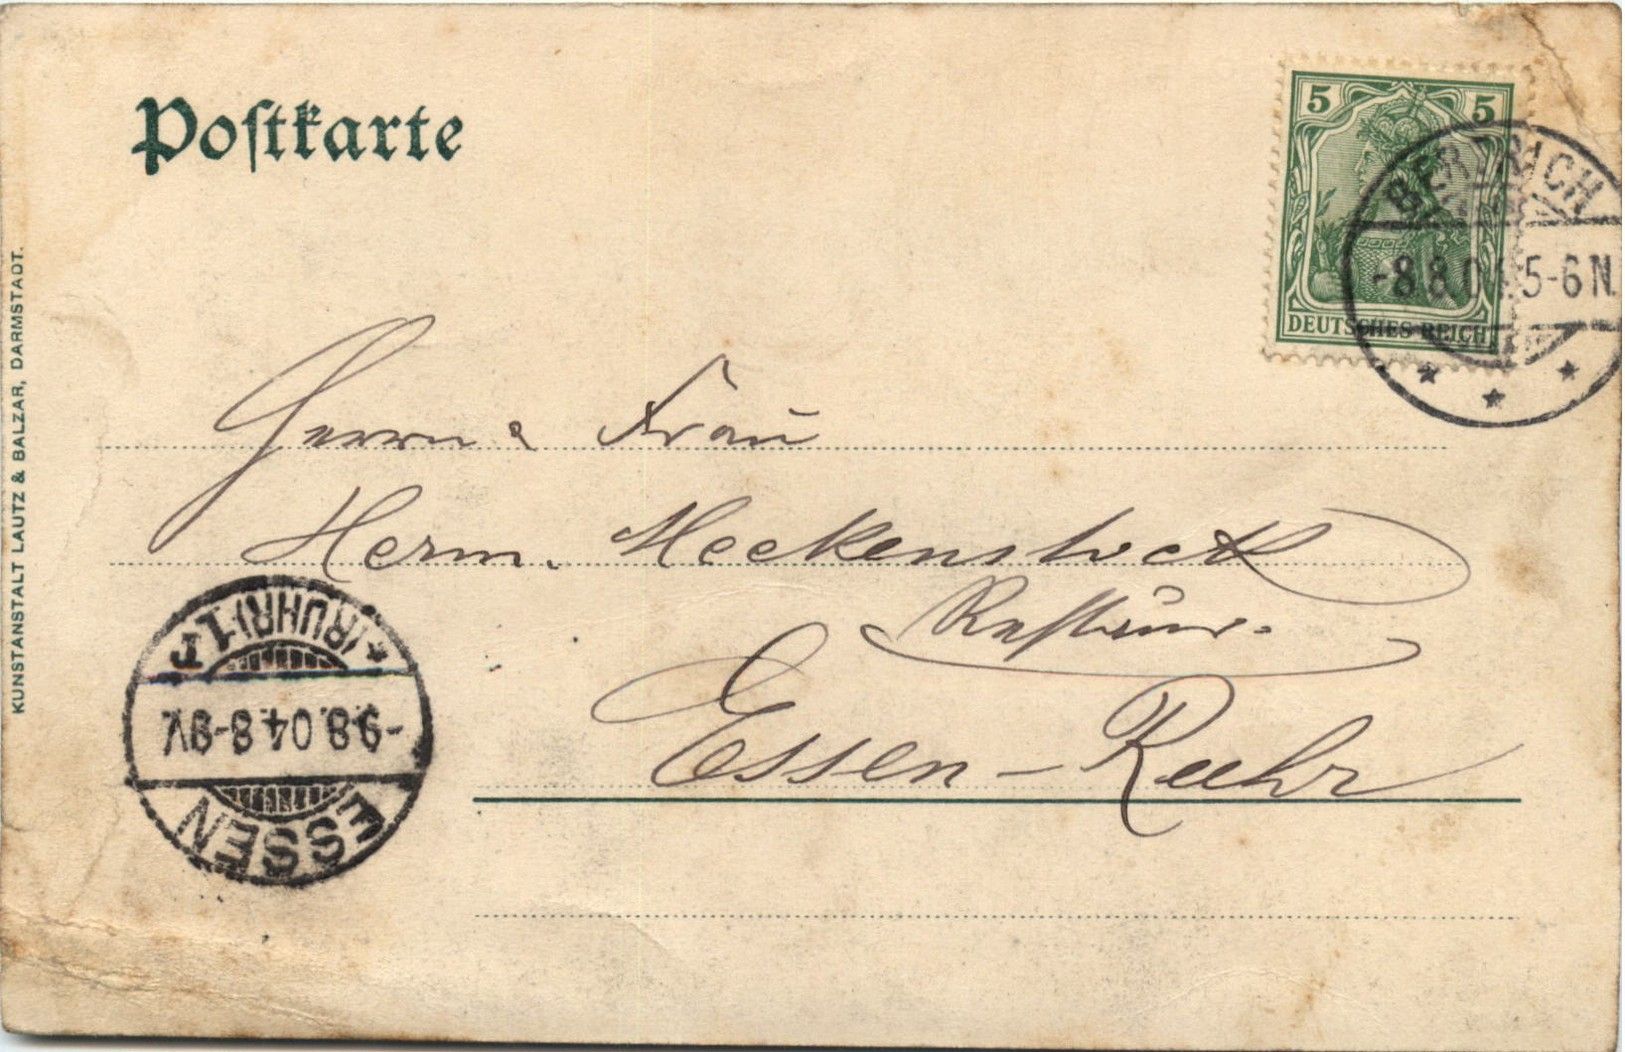 Postkarte
5 5
DEUTSCHES REICH
BERTRICH
-8.8.04.5-6N.
KUNSTANSTALT LAUTZ & BALZAR, DARMSTADT.
Herrn & Frau
Herm. Heckenstock
Essen-Ruhr
*(RUHR)1r
-9.8.04.8-9V.
ESSEN